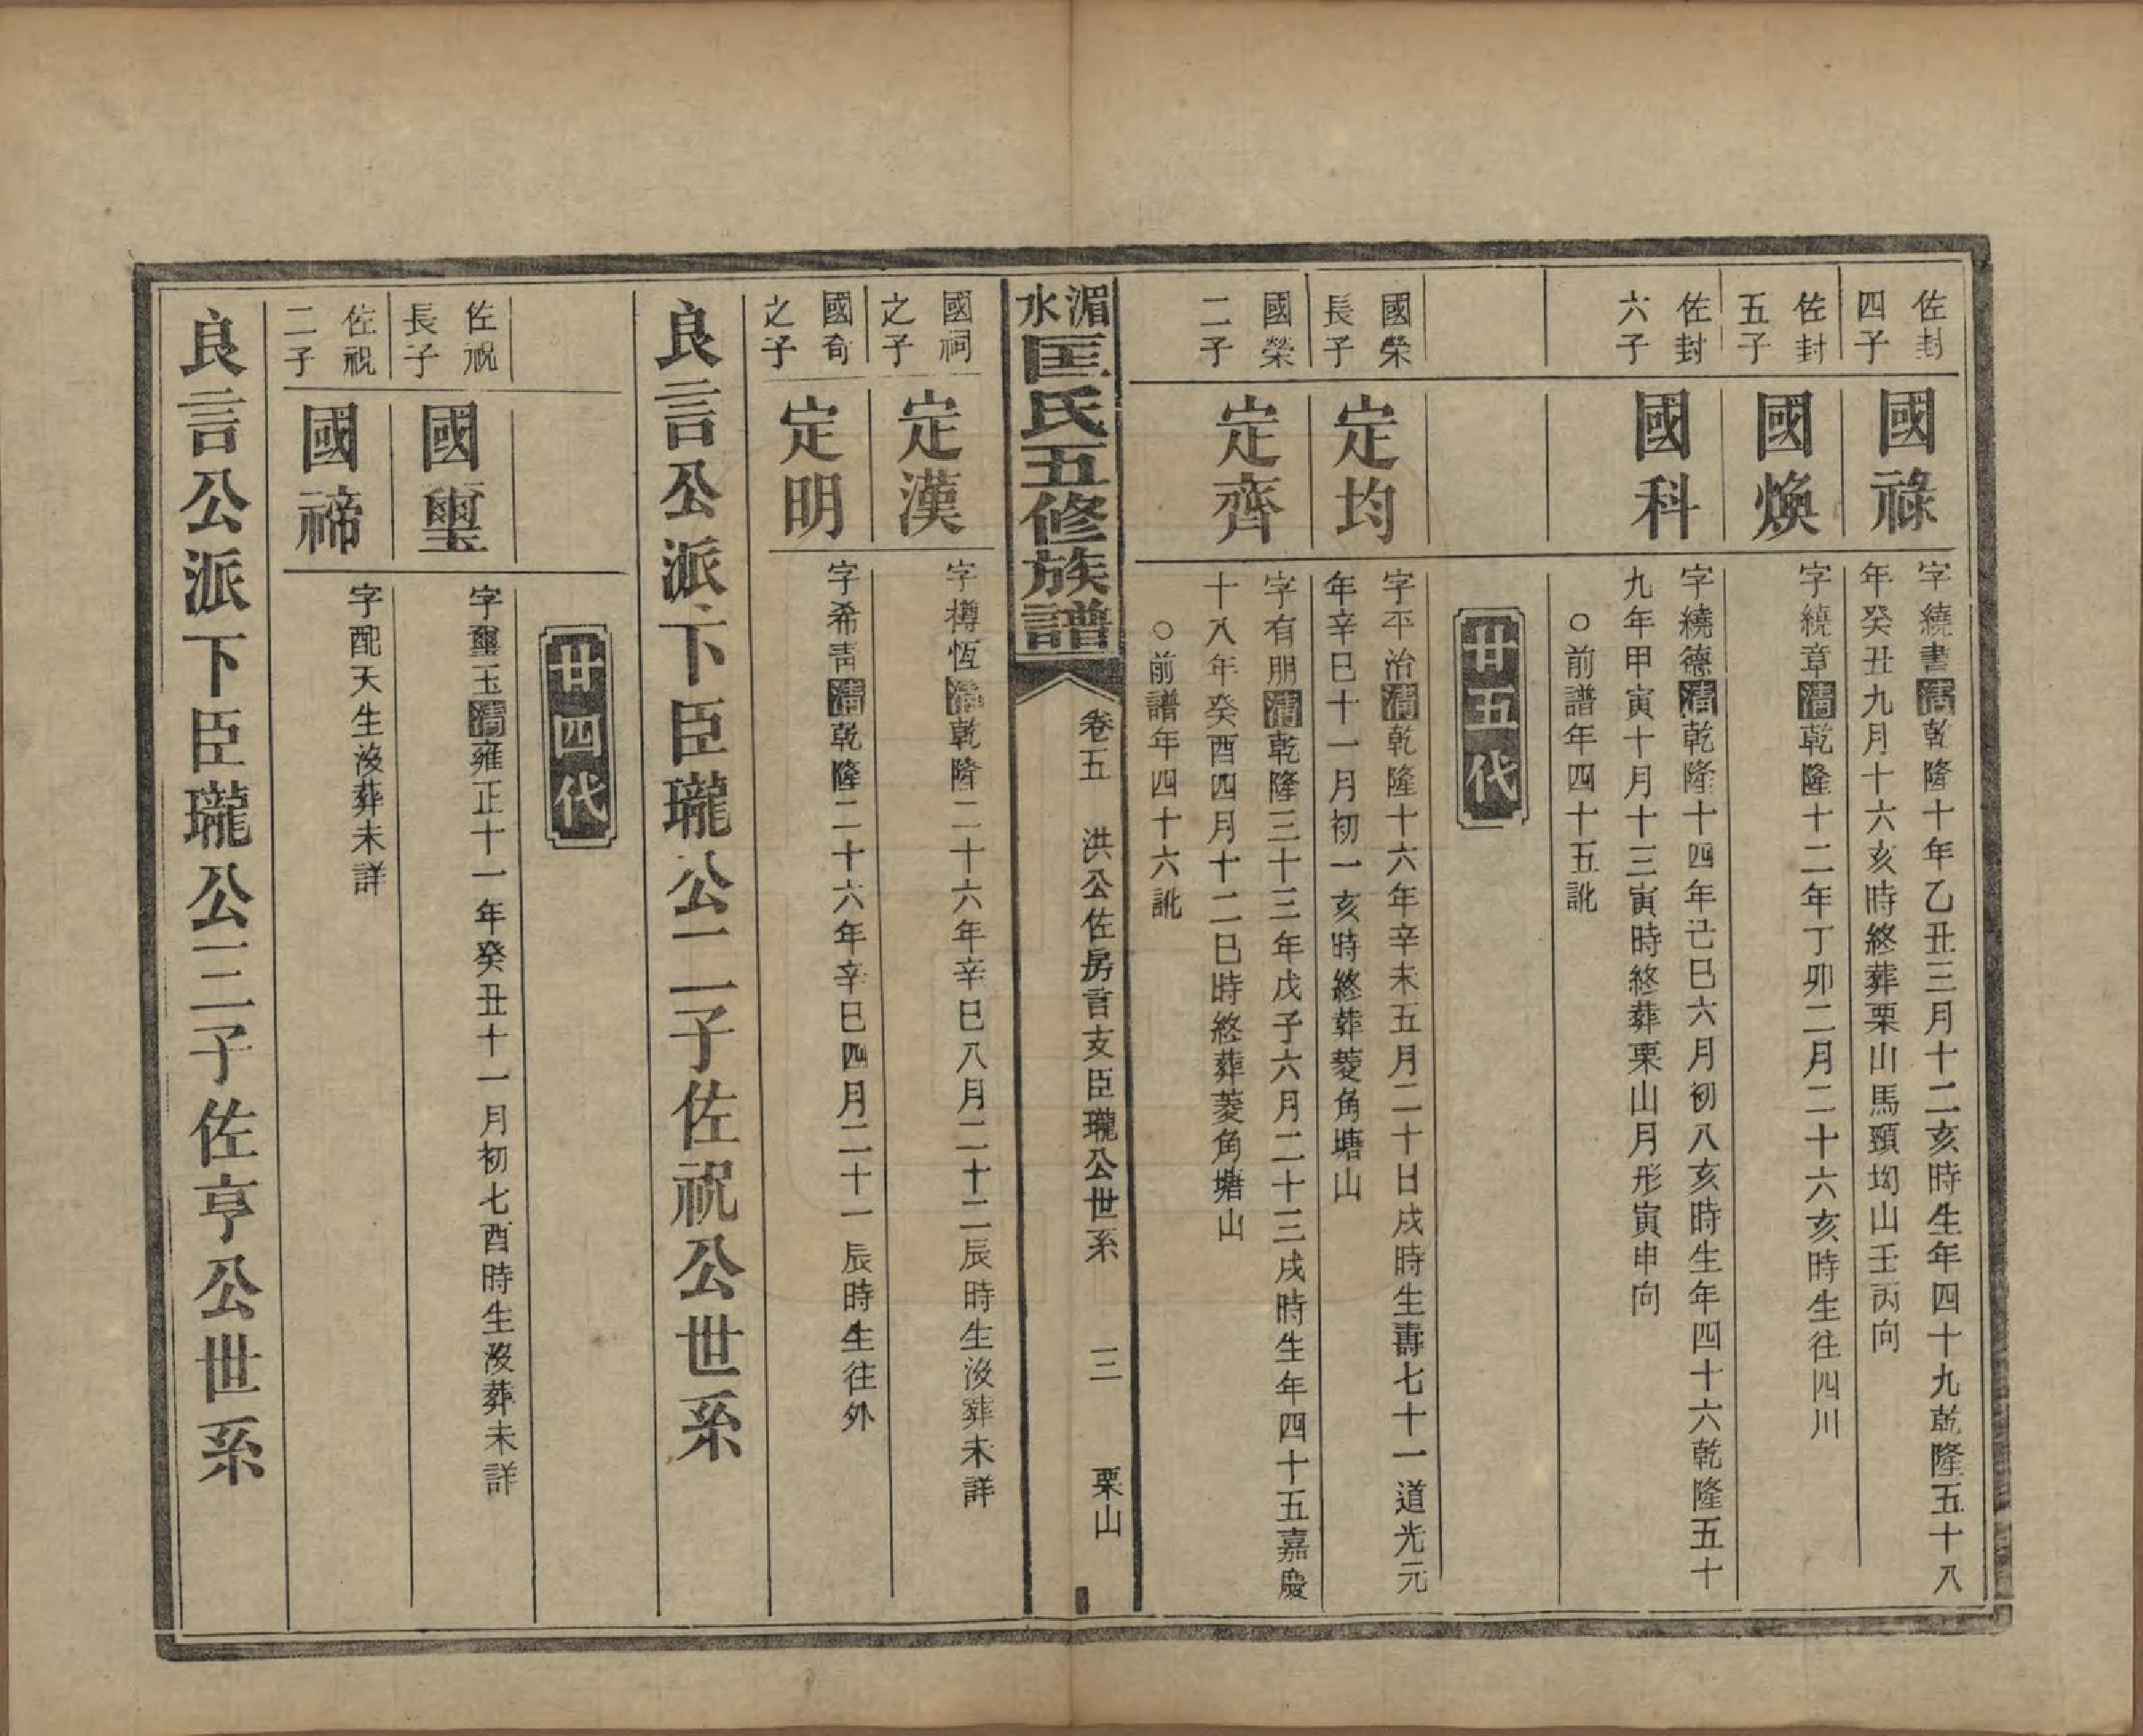 佐封
四子
國祿
字繞書清乾隆十年乙丑三月十二亥時生年四十九乾隆五十八
年癸丑九月十六亥時終葬栗山馬頸坳山壬丙向
佐封
五子
國煥
字繞章清乾隆十二年丁卯二月二十六亥時生往四川
佐封
六子
國科
字繞德清乾隆十四年己巳六月初八亥時生年四十六乾隆五十
九年甲寅十月十三寅時終葬栗山月形寅申向
○前譜年四十五訛
廿五代
國榮
長子
定均
字平治清乾隆十六年辛未五月二十日戌時生壽七十一道光元
年辛巳十一月初一亥時終葬菱角塘山
國榮
二子
定齊
字有朋清乾隆三十三年戊子六月二十三戌時生年四十五嘉慶
十八年癸酉四月十二巳時終葬菱角塘山
○前譜年四十六訛
湄水匡氏五修族譜
卷五 洪公佐房言支臣瓏公世系 三 栗山
國祠
之子
定漢
字樽恆清乾隆二十六年辛巳八月二十二辰時生沒葬未詳
國奇
之子
定明
字希青清乾隆二十六年辛巳四月二十一辰時生往外
良言公派下臣瓏公二子佐祝公世系
廿四代
佐祝
長子
國璽
字璽玉清雍正十一年癸丑十一月初七酉時生沒葬未詳
佐祝
二子
國禘
字配天生沒葬未詳
良言公派下臣瓏公三子佐亨公世系